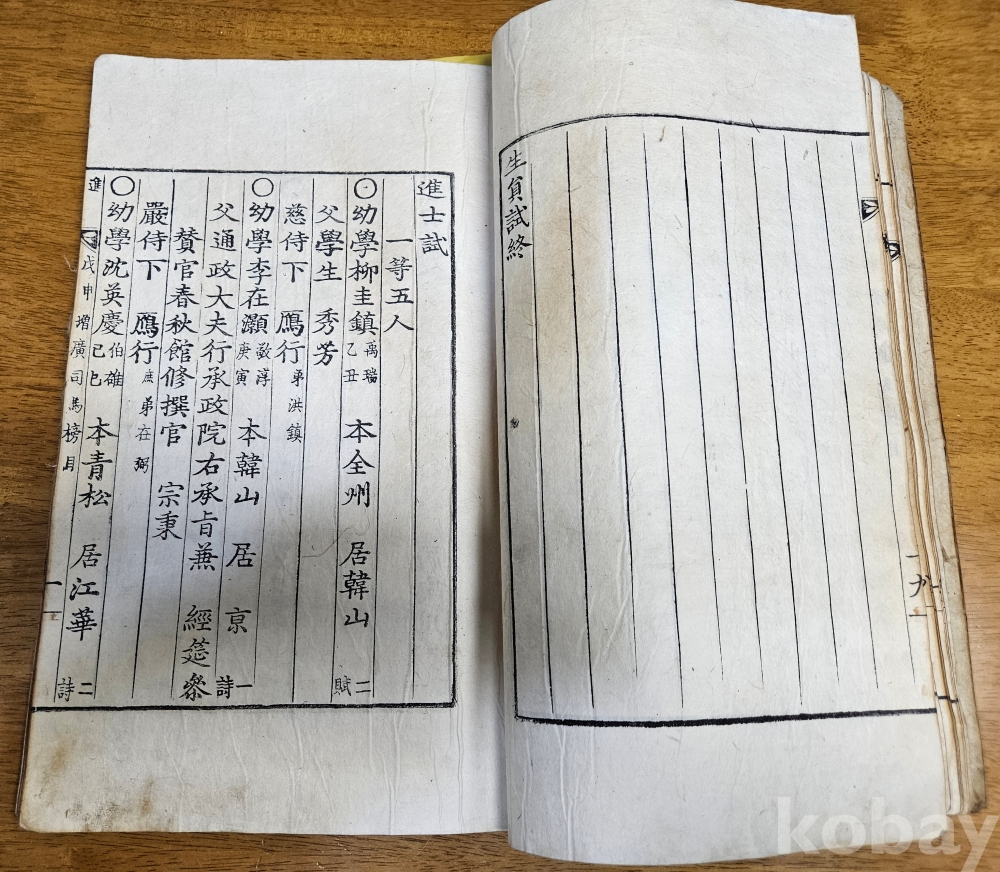 生員試終
九
進士試
一等五人
○幼學柳圭鎮 禹瑞 乙丑 本全州 居韓山 賦二
父學生 秀芳
慈侍下 鴈行 弟洪鎮
○幼學李在灝 敬淳 庚寅 本韓山 居京 詩一
父通政大夫行承政院右承旨兼 經筵參
贊官春秋館修撰官 宗秉
嚴侍下 鴈行 庶弟在弼
○幼學沈英慶 伯雄 己巳 本青松 居江華 詩二
進 戊申增廣司馬榜目 一
kobay